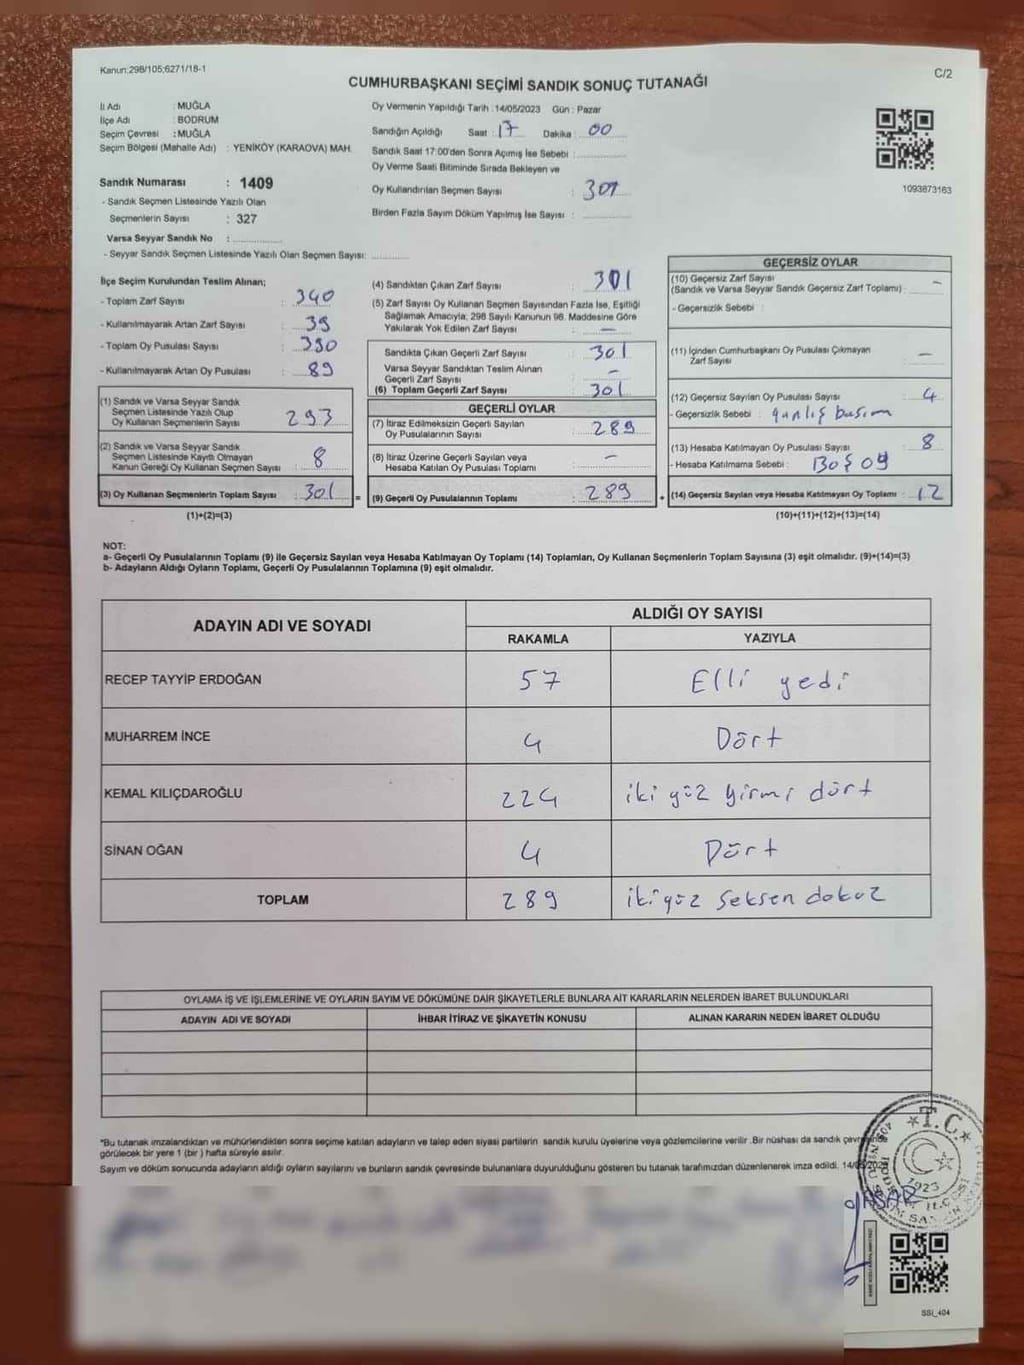 Kanun:298/105;6271/18-1
C/2
CUMHURBAŞKANI SEÇİMİ SANDIK SONUÇ TUTANAĞI
İl Adı : MUĞLA
İlçe Adı : BODRUM
Seçim Çevresi : MUĞLA
Seçim Bölgesi (Mahalle Adı) : YENİKÖY (KARAOVA) MAH.
Sandık Numarası : 1409
- Sandık Seçmen Listesinde Yazılı Olan
Seçmenlerin Sayısı : 327
Varsa Seyyar Sandık No :
- Seyyar Sandık Seçmen Listesinde Yazılı Olan Seçmen Sayısı:
Oy Vermenin Yapıldığı Tarih :14/05/2023 Gün : Pazar
Sandığın Açıldığı Saat : 17 Dakika : 00
Sandık Saat 17:00'den Sonra Açmış İse Sebebi :
Oy Verme Saati Bitiminde Sırada Bekleyen ve
Oy Kullandırılan Seçmen Sayısı : 301
Birden Fazla Sayım Döküm Yapılmış İse Sayısı :
1093873163
İlçe Seçim Kurulundan Teslim Alınan;
- Toplam Zarf Sayısı : 340
- Kullanılmayarak Artan Zarf Sayısı : 39
- Toplam Oy Pusulası Sayısı : 390
- Kullanılmayarak Artan Oy Pusulası : 89
(1) Sandık ve Varsa Seyyar Sandık
Seçmen Listesinde Yazılı Olup
Oy Kullanan Seçmenlerin Sayısı : 293
(2) Sandık ve Varsa Seyyar Sandık
Seçmen Listesinde Kayıtlı Olmayan
Kanun Gereği Oy Kullanan Seçmen Sayısı : 8
(3) Oy Kullanan Seçmenlerin Toplam Sayısı : 301 =
(1)+(2)=(3)
(4) Sandıktan Çıkan Zarf Sayısı : 301
(5) Zarf Sayısı Oy Kullanan Seçmen Sayısından Fazla İse, Eşitliği
Sağlamak Amacıyla; 298 Sayılı Kanunun 98. Maddesine Göre
Yakılarak Yok Edilen Zarf Sayısı : —
Sandıkta Çıkan Geçerli Zarf Sayısı : 301
Varsa Seyyar Sandıktan Teslim Alınan
Geçerli Zarf Sayısı : —
(6) Toplam Geçerli Zarf Sayısı : 301
GEÇERLİ OYLAR
(7) İtiraz Edilmeksizin Geçerli Sayılan
Oy Pusulalarının Sayısı : 289
(8) İtiraz Üzerine Geçerli Sayılan veya
Hesaba Katılan Oy Pusulası Toplamı : —
(9) Geçerli Oy Pusulalarının Toplamı : 289 +
GEÇERSİZ OYLAR
(10) Geçersiz Zarf Sayısı
(Sandık ve Varsa Seyyar Sandık Geçersiz Zarf Toplamı) : —
- Geçersizlik Sebebi :
(11) İçinden Cumhurbaşkanı Oy Pusulası Çıkmayan
Zarf Sayısı : —
(12) Geçersiz Sayılan Oy Pusulası Sayısı : 4
- Geçersizlik Sebebi : yanlış basım
(13) Hesaba Katılmayan Oy Pusulası Sayısı : 8
- Hesaba Katılmama Sebebi : BOŞ OY
(14) Geçersiz Sayılan veya Hesaba Katılmayan Oy Toplamı : 12
(10)+(11)+(12)+(13)=(14)
NOT:
a- Geçerli Oy Pusulalarının Toplamı (9) ile Geçersiz Sayılan veya Hesaba Katılmayan Oy Toplamı (14) Toplamları, Oy Kullanan Seçmenlerin Toplam Sayısına (3) eşit olmalıdır. (9)+(14)=(3)
b- Adayların Aldığı Oyların Toplamı, Geçerli Oy Pusulalarının Toplamına (9) eşit olmalıdır.
ADAYIN ADI VE SOYADI
ALDIĞI OY SAYISI
RAKAMLA YAZIYLA
RECEP TAYYİP ERDOĞAN 57 Elli yedi
MUHARREM İNCE 4 Dört
KEMAL KILIÇDAROĞLU 224 iki yüz yirmi dört
SİNAN OĞAN 4 Dört
TOPLAM 289 iki yüz seksen dokuz
OYLAMA İŞ VE İŞLEMLERİNE VE OYLARIN SAYIM VE DÖKÜMÜNE DAİR ŞİKAYETLERLE BUNLARA AİT KARARLARIN NELERDEN İBARET BULUNDUKLARI
ADAYIN ADI VE SOYADI İHBAR İTİRAZ VE ŞİKAYETİN KONUSU ALINAN KARARIN NEDEN İBARET OLDUĞU
*Bu tutanak imzalandıktan ve mühürlendikten sonra seçime katılan adayların ve talep eden siyasi partilerin sandık kurulu üyelerine veya gözlemcilerine verilir .Bir nüshası da sandık çevresinde
görülecek bir yere 1 (bir ) hafta süreyle asılır.
Sayım ve döküm sonucunda adayların aldığı oyların sayılarını ve bunların sandık çevresinde bulunanlara duyurulduğunu gösteren bu tutanak tarafımızdan düzenlenerek imza edildi. 14/05/2023
T.C.
1923
SSI_404